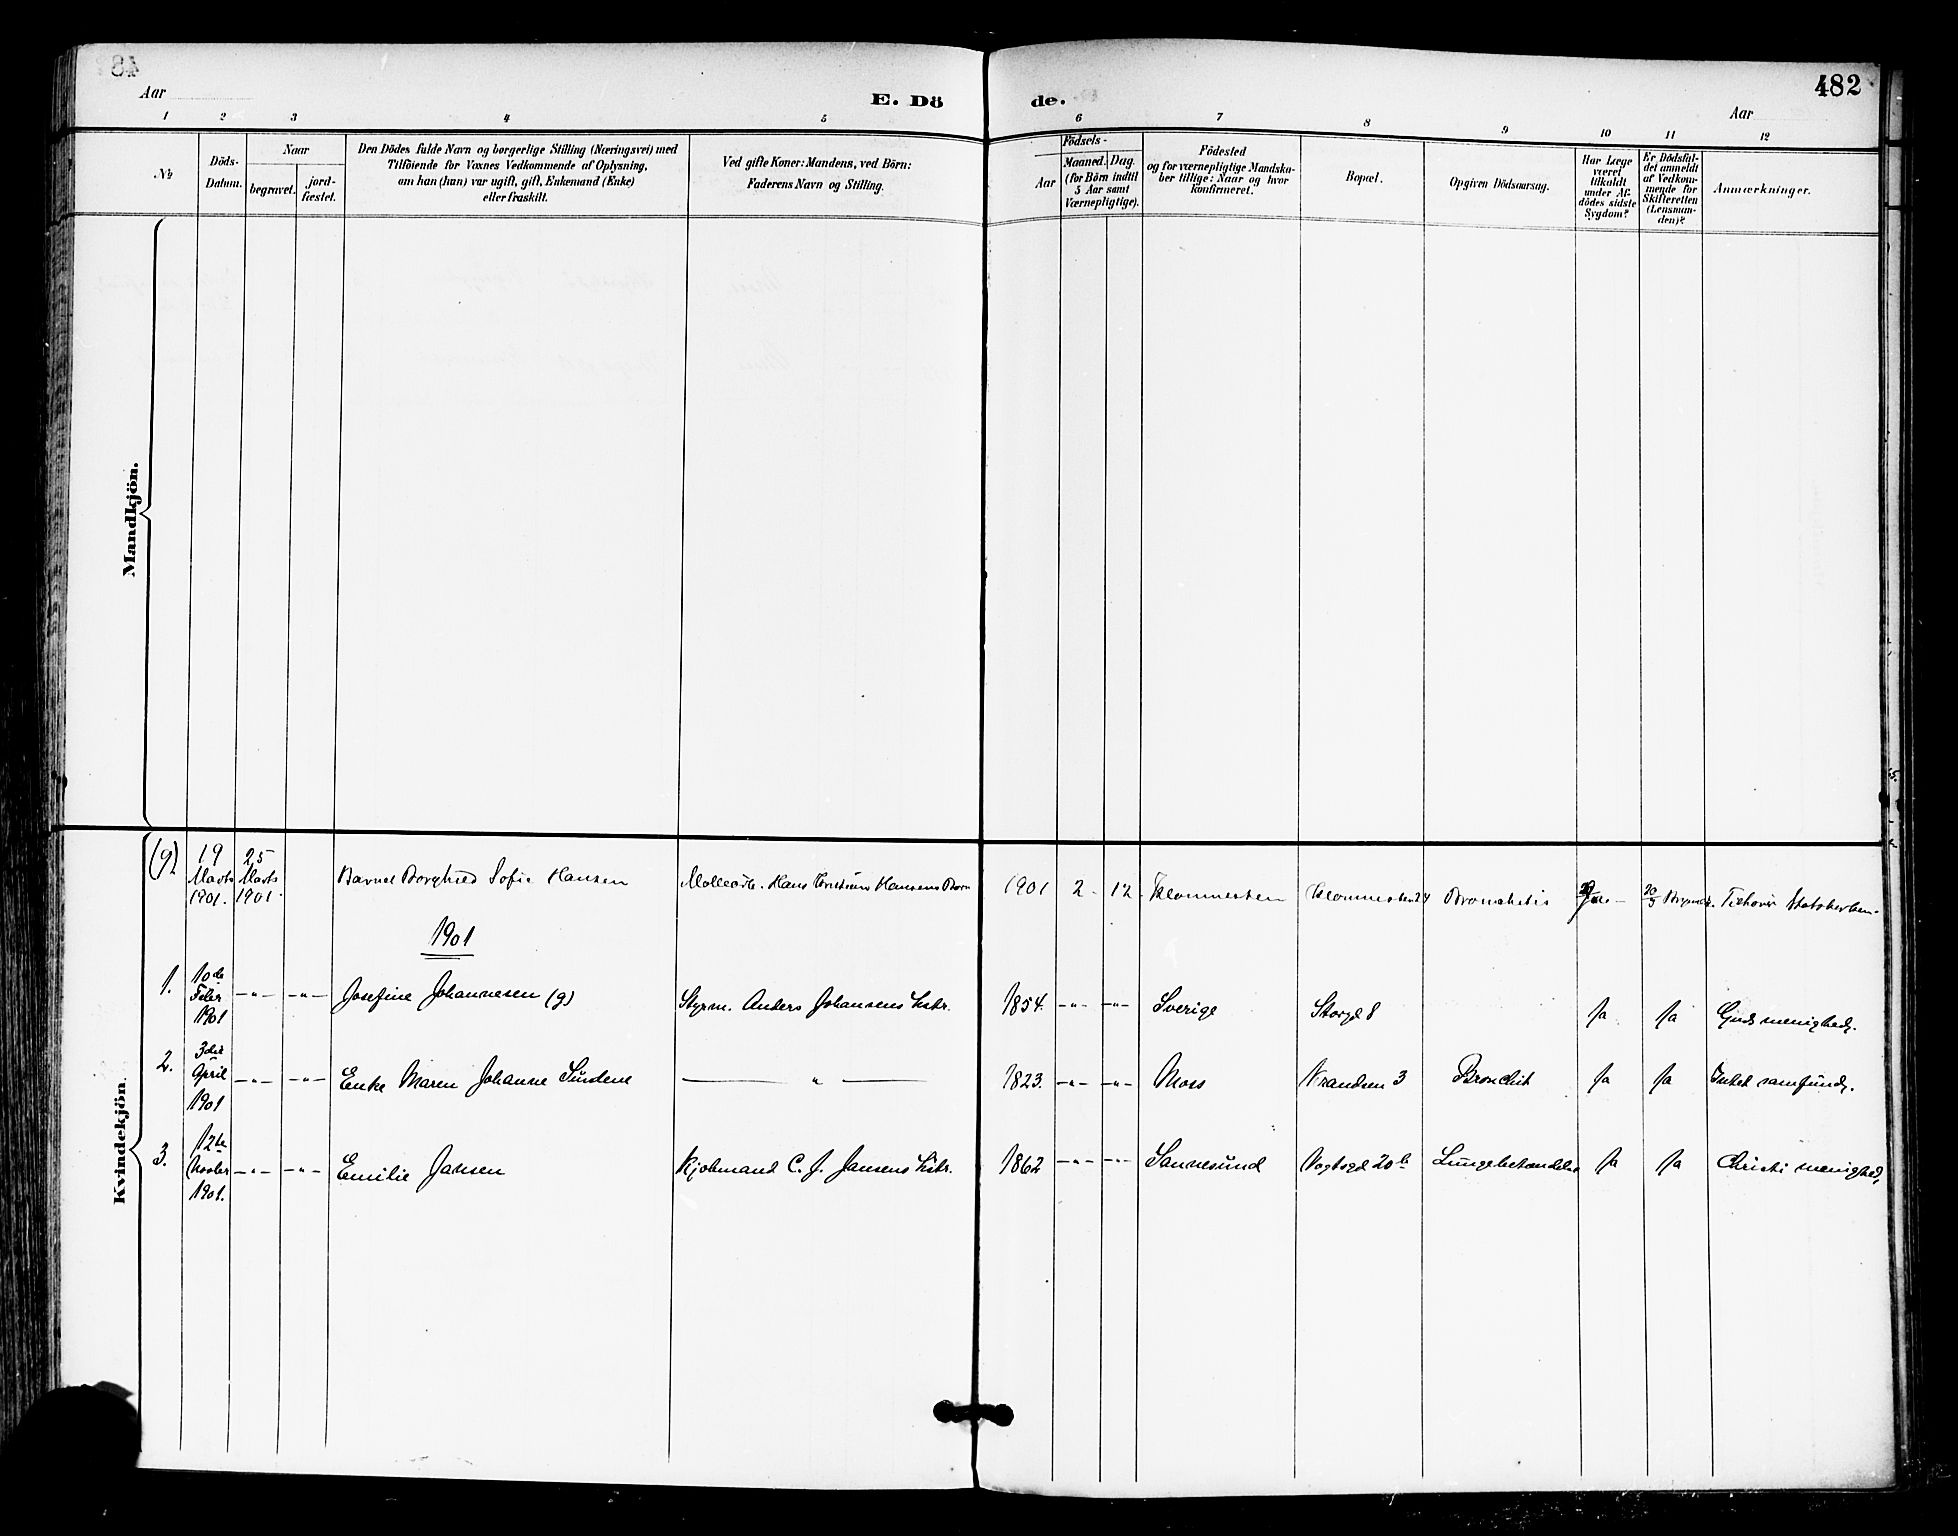 482
Aar
E. Dö
de.
Aar
1 2 3 4 5 6 7 8 9 10 11 12
№
Döds-
Datum.
Naar
begravet.
jord-
fæstet.
Den Dödes fulde Navn og borgerlige Stilling (Næringsvei) med
Tilföiende for Voxnes Vedkommende af Oplysning,
om han (hun) var ugift, gift, Enkemand (Enke)
eller fraskilt.
Ved gifte Koner: Mandens, ved Börn:
Faderens Navn og Stilling.
Födsels-
Aar
Maaned. Dag.
(for Börn indtil
5 Aar samt
Værnepligtige).
Födested
og for værnepligtige Mandska-
ber tillige: Naar og hvor
konfirmeret.
Bopæl.
Opgiven Dödsaarsag.
Har Læge
været
tilkaldt
under Af-
dödes sidste
Sygdom?
Er Dödsfal-
det anmeldt
af Vedkom-
mende for
Skifteretten
(Lensman-
den)?
Anmærkninger.
Mandkjön.
Kvindekjön.
19 Marts 1901. 25 Marts 1901. Barnet Borghild Sofie Hansen Hansens Barn 1901 2 12 Glommesten Glommesten 24 Bronchitis Tilhörer Statskirken.
1901
1. 10de Febr 1901 -"- -"- Josefine Johannesen (g) Styrm. Anders Johansens Hstr. 1854. -"- -"- Sverige Storgd 8 Ja Ja Guds menighed.
2. 3die April 1901 -"- -"- Enke Maren Johanne Sundene — " — 1823. -"- -"- Moss Vrandsen 3 Bronchit Ja Ja Intet samfund.
3. 12te Novbr 1901. -"- -"- Emilie Jansen Kjøbmand C. J. Jansens Hstr. 1862 -"- -"- Sannesund Vogtsgd 20b Lungebetændelse Ja Ja Christi menighed,